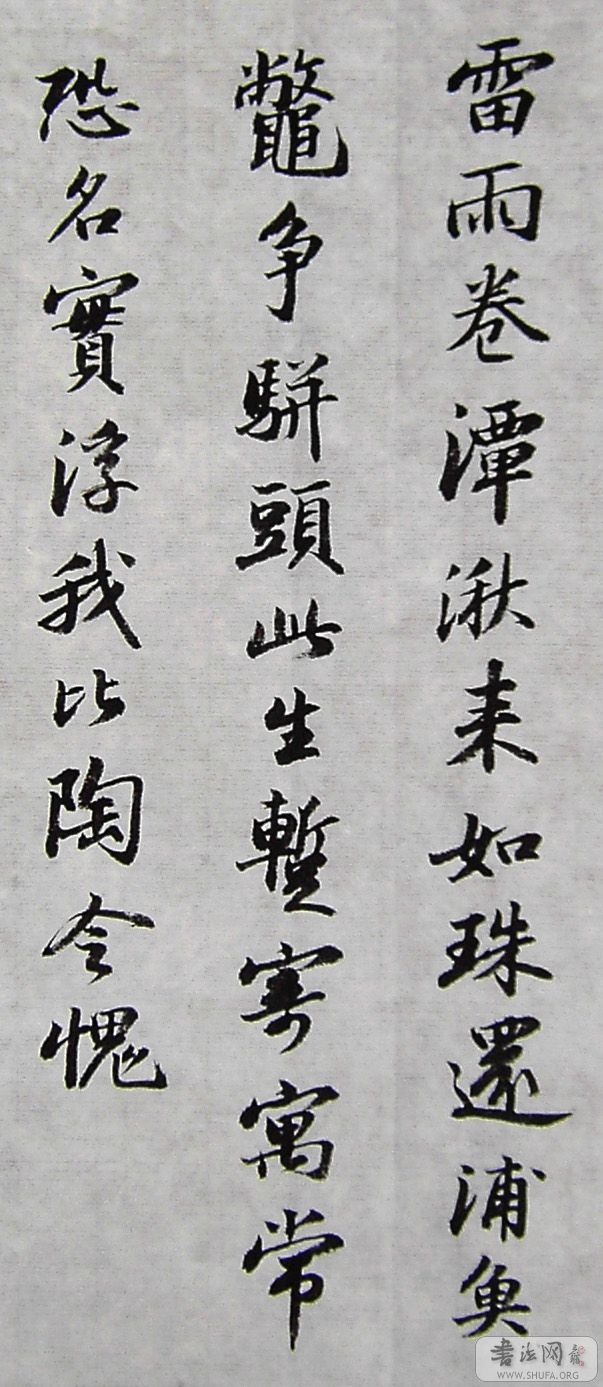 雷雨卷潭湫来如珠還浦魚
鼈争駢頭此生蹔寄寓常
恐名實浮我比陶令愧
書法网
WWW.SHUFA.ORG